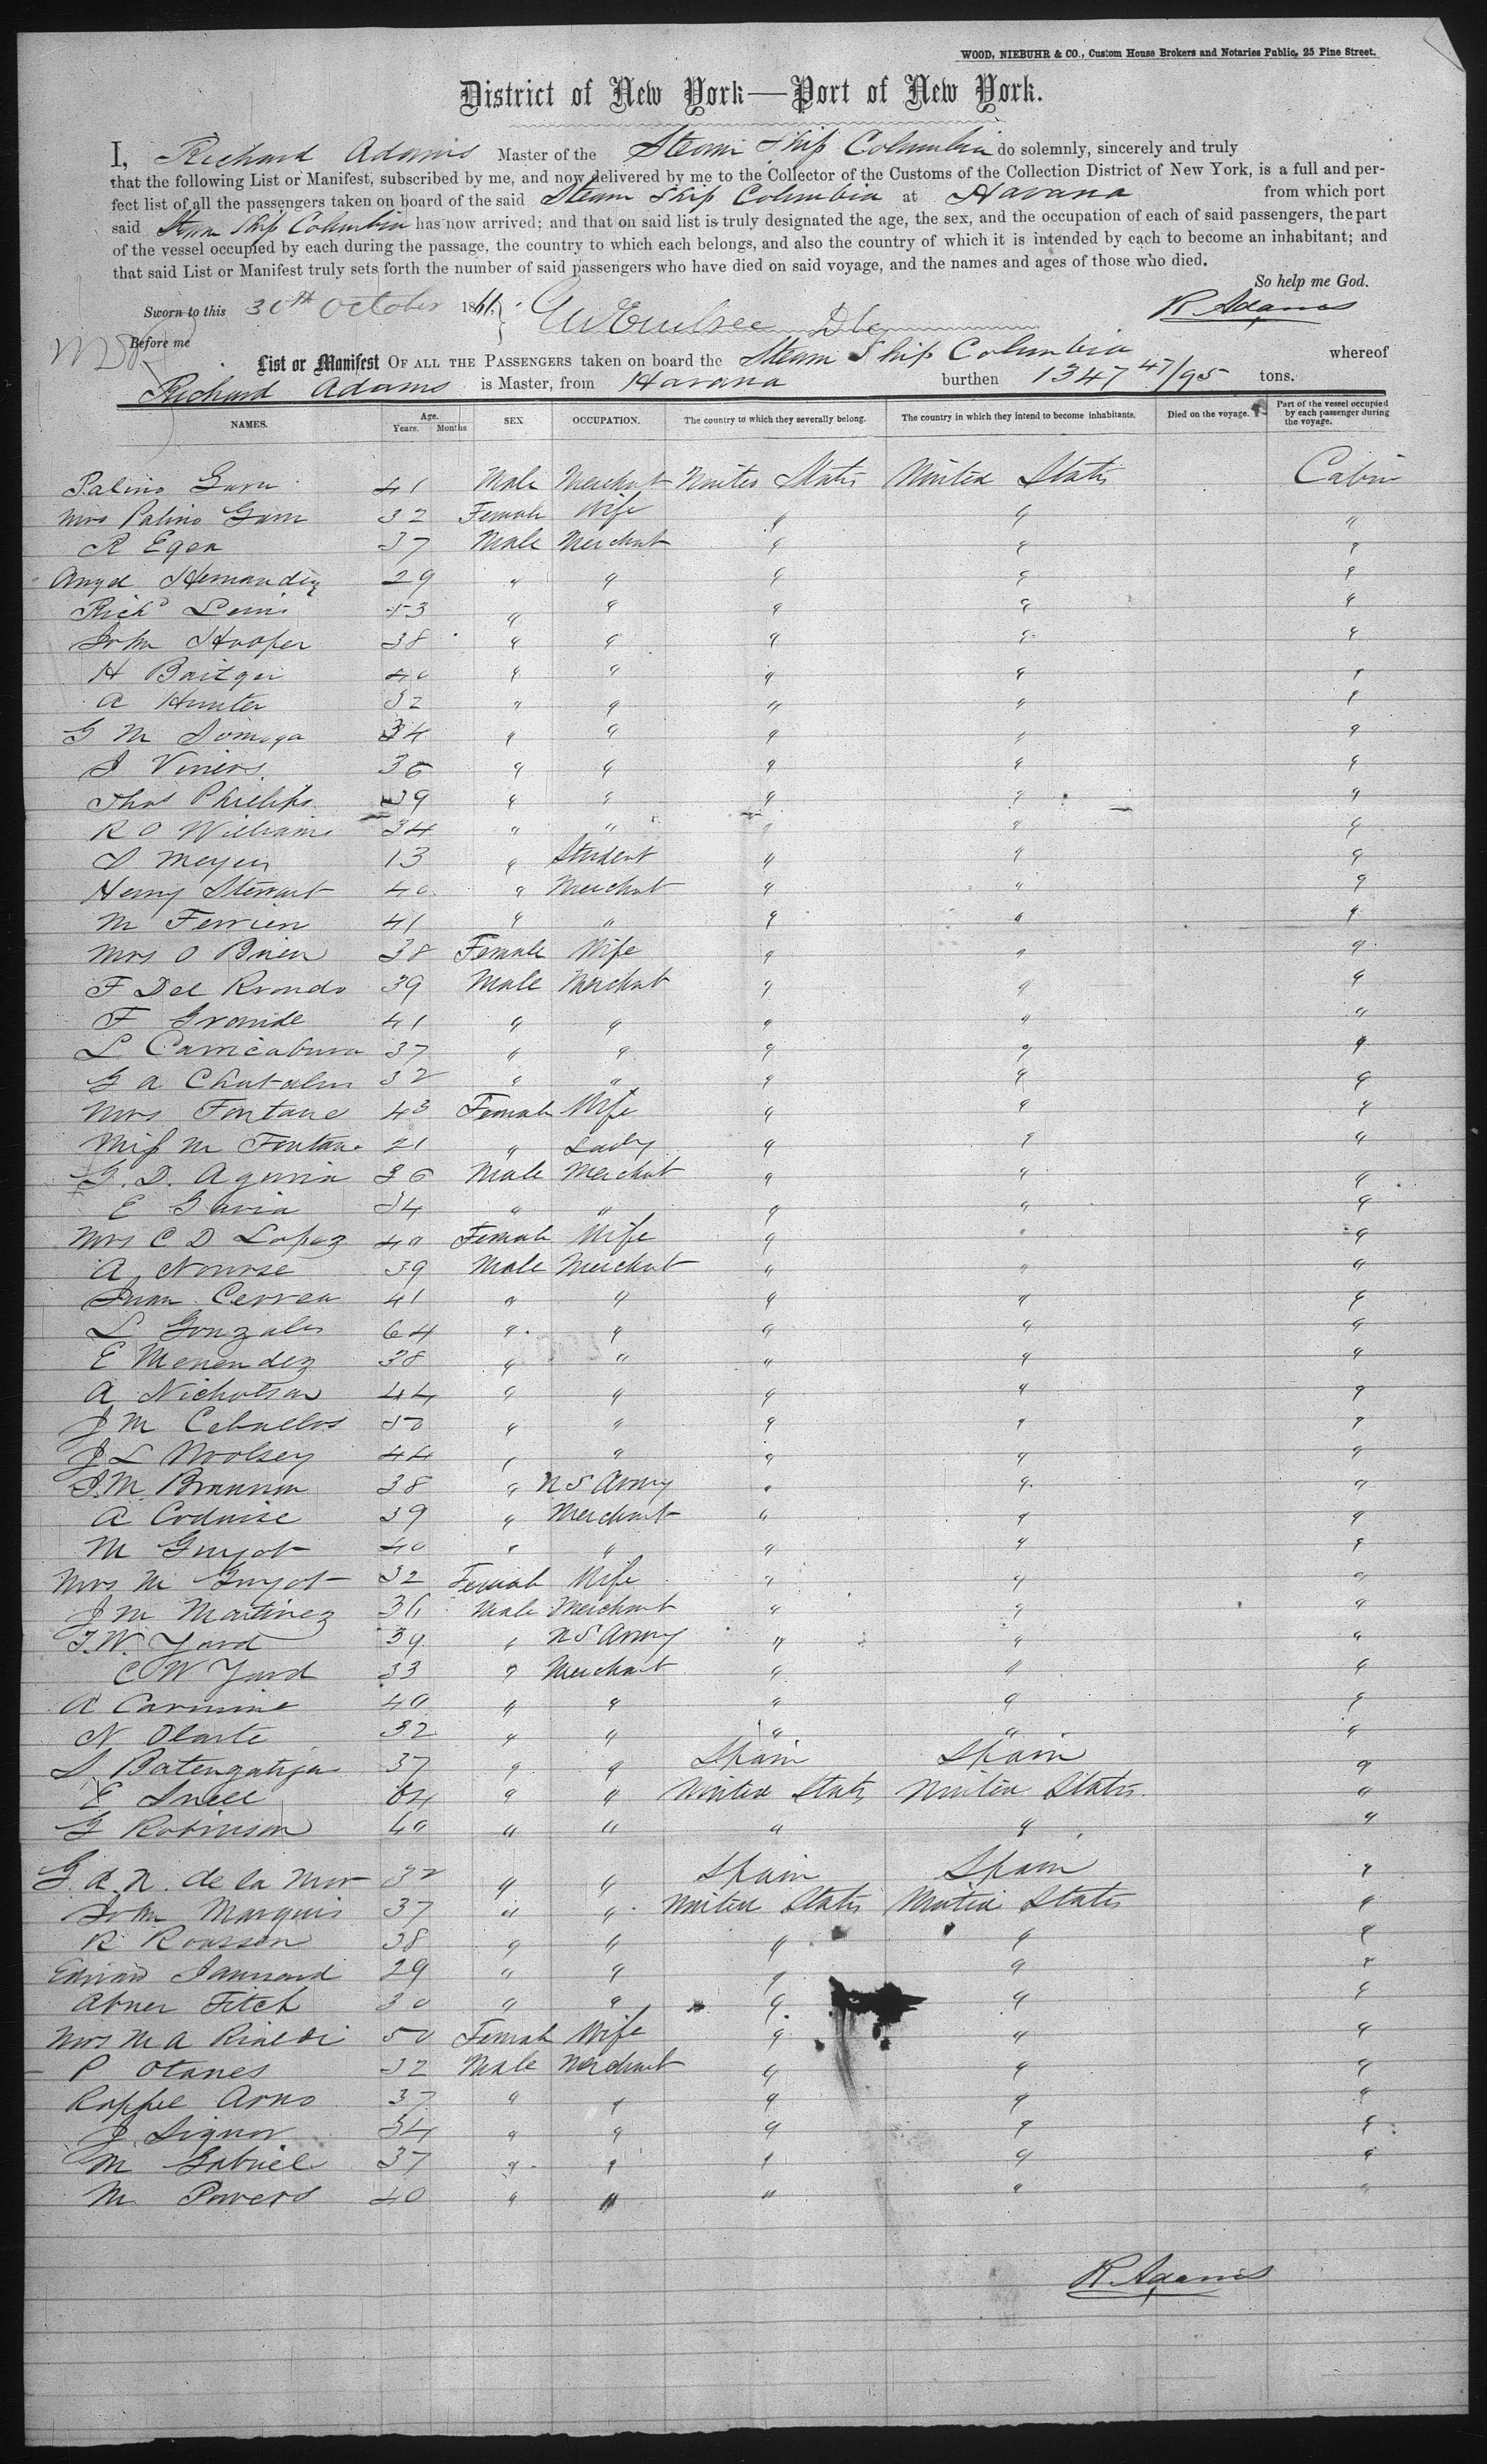 WOOD, NIEBUHR & CO., Custom House Brokers and Notaries Public, 25 Pine Street.
District of New York—Port of New York.
I, Richard Adams Master of the Steam Ship Columbia do solemnly, sincerely and truly
that the following List or Manifest, subscribed by me, and now delivered by me to the Collector of the Customs of the Collection District of New York, is a full and per-
fect list of all the passengers taken on board of the said Steam Ship Columbia at Havana from which port
said Steam Ship Columbia has now arrived; and that on said list is truly designated the age, the sex, and the occupation of each of said passengers, the part
of the vessel occupied by each during the passage, the country to which each belongs, and also the country of which it is intended by each to become an inhabitant; and
that said List or Manifest truly sets forth the number of said passengers who have died on said voyage, and the names and ages of those who died.
So help me God.
Sworn to this 30th October 1861. R Adams
Before me
List or Manifest OF ALL THE PASSENGERS taken on board the Steam Ship Columbia whereof
Richard Adams is Master, from Havana burthen 1347 47/95 tons.
NAMES. Age. Years. Months SEX OCCUPATION. The country to which they severally belong. The country in which they intend to become inhabitants. Died on the voyage. Part of the vessel occupied by each passenger during the voyage.
Palino 41 Male Merchant United States United States Cabin
Mrs Palino 32 Female Wife " " "
R Egea 37 Male Merchant " " "
Angel Hernandez 29 " " " " "
Richd Lewis 53 " " " " "
John Hooper 38 " " " " "
H 40 " " " " "
A Hunter 32 " " " " "
G M 34 " " " " "
J Viniers 36 " " " " "
Thos Phillips 39 " " " " "
R O Williams 34 " " " " "
Meyer 13 " Student " " "
Henry Stewart 40 " Merchant " " "
M Ferrien 41 " " " " "
Mrs O Brien 38 Female Wife " " "
F Del 39 Male Merchant " " "
F Grande 41 " " " " "
L Carricaburu 37 " " " " "
G A 32 " " " " "
Mrs Fontane 43 Female Wife " " "
Miss M Fontane 21 " Lady " " "
G. D. 36 Male Merchant " " "
E Garia 34 " " " " "
Mrs C D Lopez 40 Female Wife " " "
A Nourse 39 Male Merchant " " "
Juan Cerrea 41 " " " " "
L Gonzales 64 " " " " "
E Menendez 38 " " " " "
A Nicholson 44 " " " " "
J M Ceballos 50 " " " " "
J L Woolsey 44 " " " " "
J. M. Brannan 38 " U S Army " " "
A Codwise 39 " Merchant " " "
M Guyot 40 " " " " "
Mrs M Guyot 32 Female Wife " " "
J M Martinez 36 Male Merchant " " "
T. W. Yard 39 " U S Army " " "
C W Yard 33 " Merchant " " "
A Carmine 40 " " " " "
N Olarte 32 " " " " "
37 " " Spain Spain "
E Snell 64 " " United States United States "
G Robinson 40 " " " " "
G. A. N. de la 32 " " Spain Spain "
John Marquis 37 " " United States United States "
R 38 " " " " "
Edward 29 " " " " "
Abner Fitch 30 " " " " "
Mrs M A Rinaldi 50 Female Wife " " "
P Otanes 32 Male Merchant " " "
Arno 37 " " " " "
J. Signor 34 " " " " "
M Gabriel 37 " " " " "
M Powers 40 " " " " "
R Adams